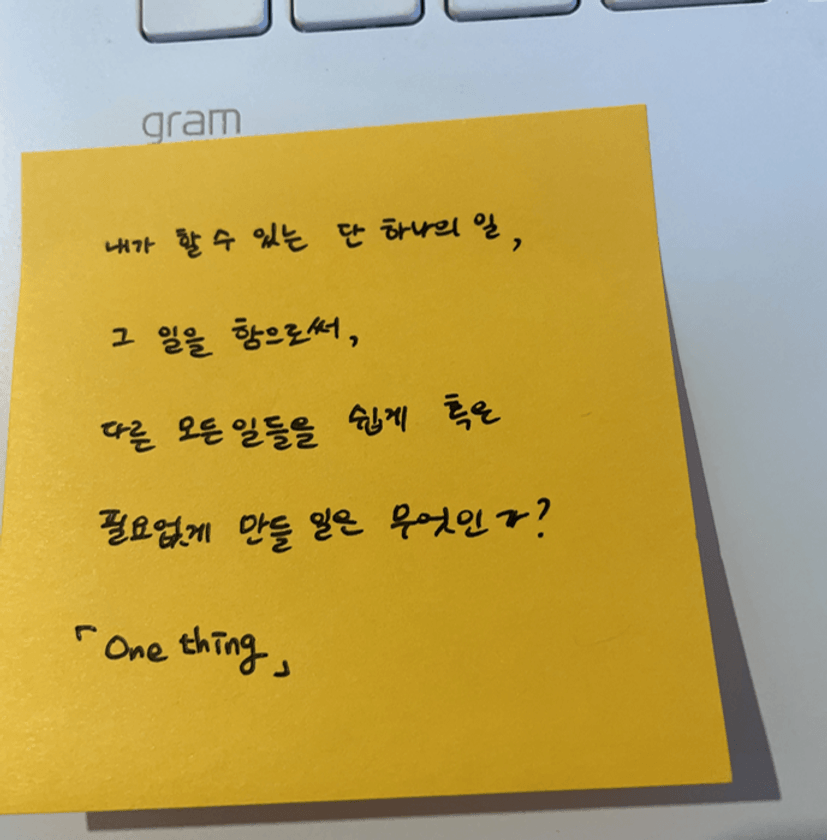 gram
내가 할 수 있는 단 하나의 일,
그 일을 함으로써,
다른 모든 일들을 쉽게 혹은
필요없게 만들 일은 무엇인가?
「One thing」